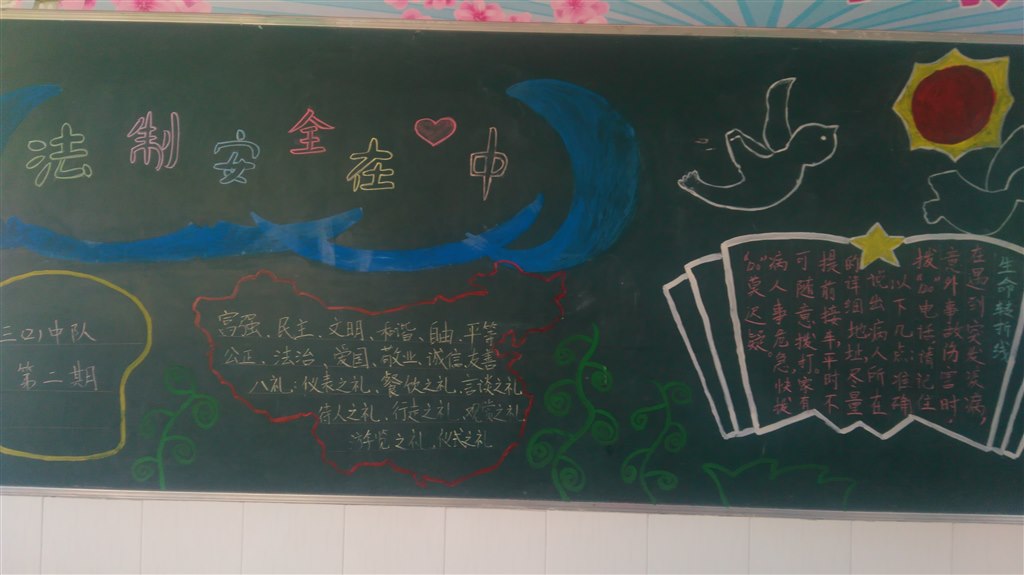 法制安全在中
三(2)中队
第二期
富强、民主、文明、和谐、自由、平等
公正、法治、爱国、敬业、诚信、友善
八礼：仪表之礼、餐饮之礼、言谈之礼
待人之礼、行走之礼、观赏之礼
游览之礼、仪式之礼
生命转折线
在遇到突发疾病，
意外事故伤害时，
拨"120"电话请记住
以下几点：准确
说出病人所在
的详细地址，尽量
提前接车，平时不
可随意拨打。家有
病人事危急，快拨
莫迟疑。